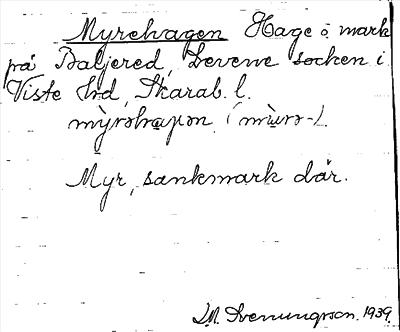 Myrehagen Hage o. mark
på Baljered, Levene socken i
Viste hd, Skarab. l.
mỳrəhaɡən (mùrə-).
Myr, sankmark där.
M. Svenungsson. 1939.